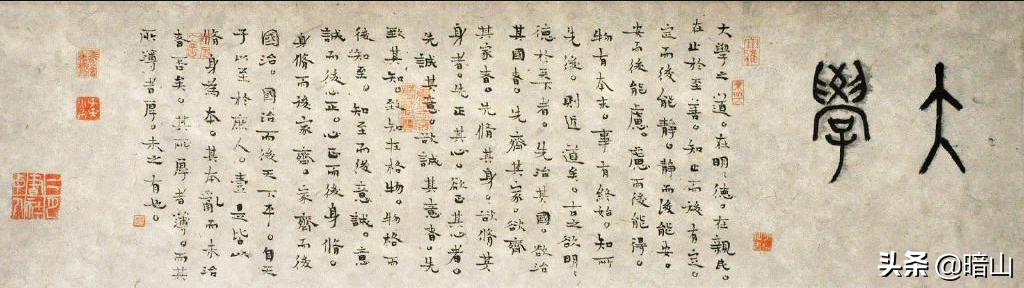 大學
大學之道。在明〻德。在親民。
在止於至善。知止而後有定。
定而後能靜。靜而後能安。
安而後能慮。慮而後能得。
物有本末。事有終始。知所
先後。則近道矣。古之欲明〻
德於天下者。先治其國。欲治
其國者。先齊其家。欲齊
其家者。先脩其身。欲脩其
身者。先正其心。欲正其心者。
先誠其意。欲誠其意者。先
致其知。致知在格物。物格而
後知至。知至而後意誠。意
誠而後心正。心正而後身脩。
身脩而後家齊。家齊而後
國治。國治而後天下平。自天
子以至於庶人。壹是皆以
脩身為本。其本亂而末治
者否矣。其所厚者薄。而其
所薄者厚。未之有也。
头条 @暗山